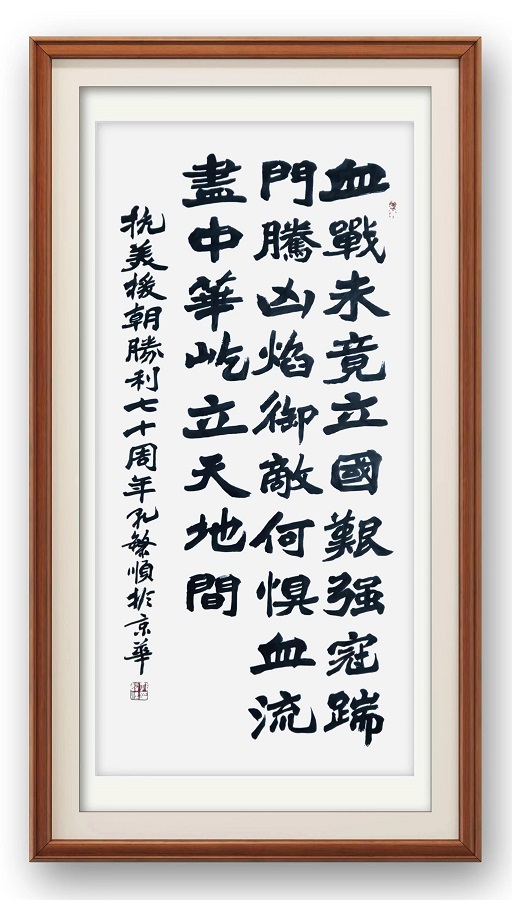 血戰未竟立國艱强寇踹
門騰凶焰御敵何惧血流
盡中華屹立天地間
抗美援朝勝利七十周年孔繁順於京華